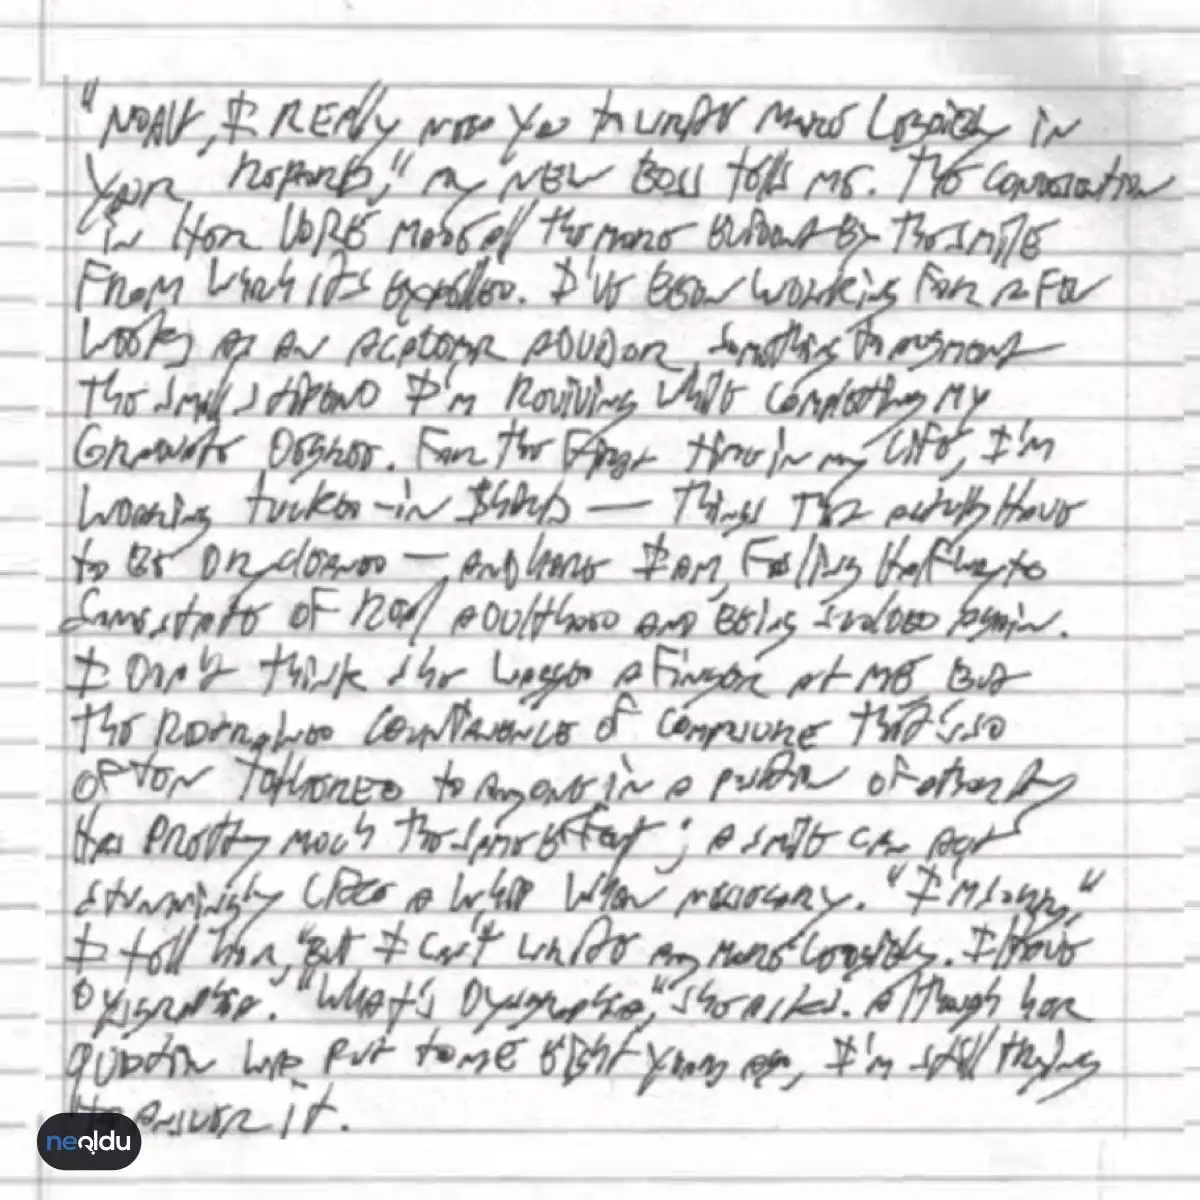 "Noah, I really need you to write more legibly in
your reports," my new boss tells me. The condescension
in her voice made all the more evident by the smile
from which it's expelled. I've been working for a few
weeks as an academic advisor, something to augment
the small stipend I'm receiving while completing my
graduate degree. For the first time in my life, I'm
wearing tucked-in shirts — things that actually have
to be dry cleaned — and here I am, feeling halfway to
some state of real adulthood and being scolded again.
I don't think she wagged a finger at me but
the restrained countenance of composure that's so
often tethered to anyone in a position of authority
has pretty much the same effect; a smile can act
stunningly like a whip when necessary. "I'm sorry,"
I tell her, "but I can't write any more legibly. I have
dysgraphia." "What's dysgraphia," she asked. Although her
question was put to me eight years ago, I'm still trying
to answer it.
neoldu